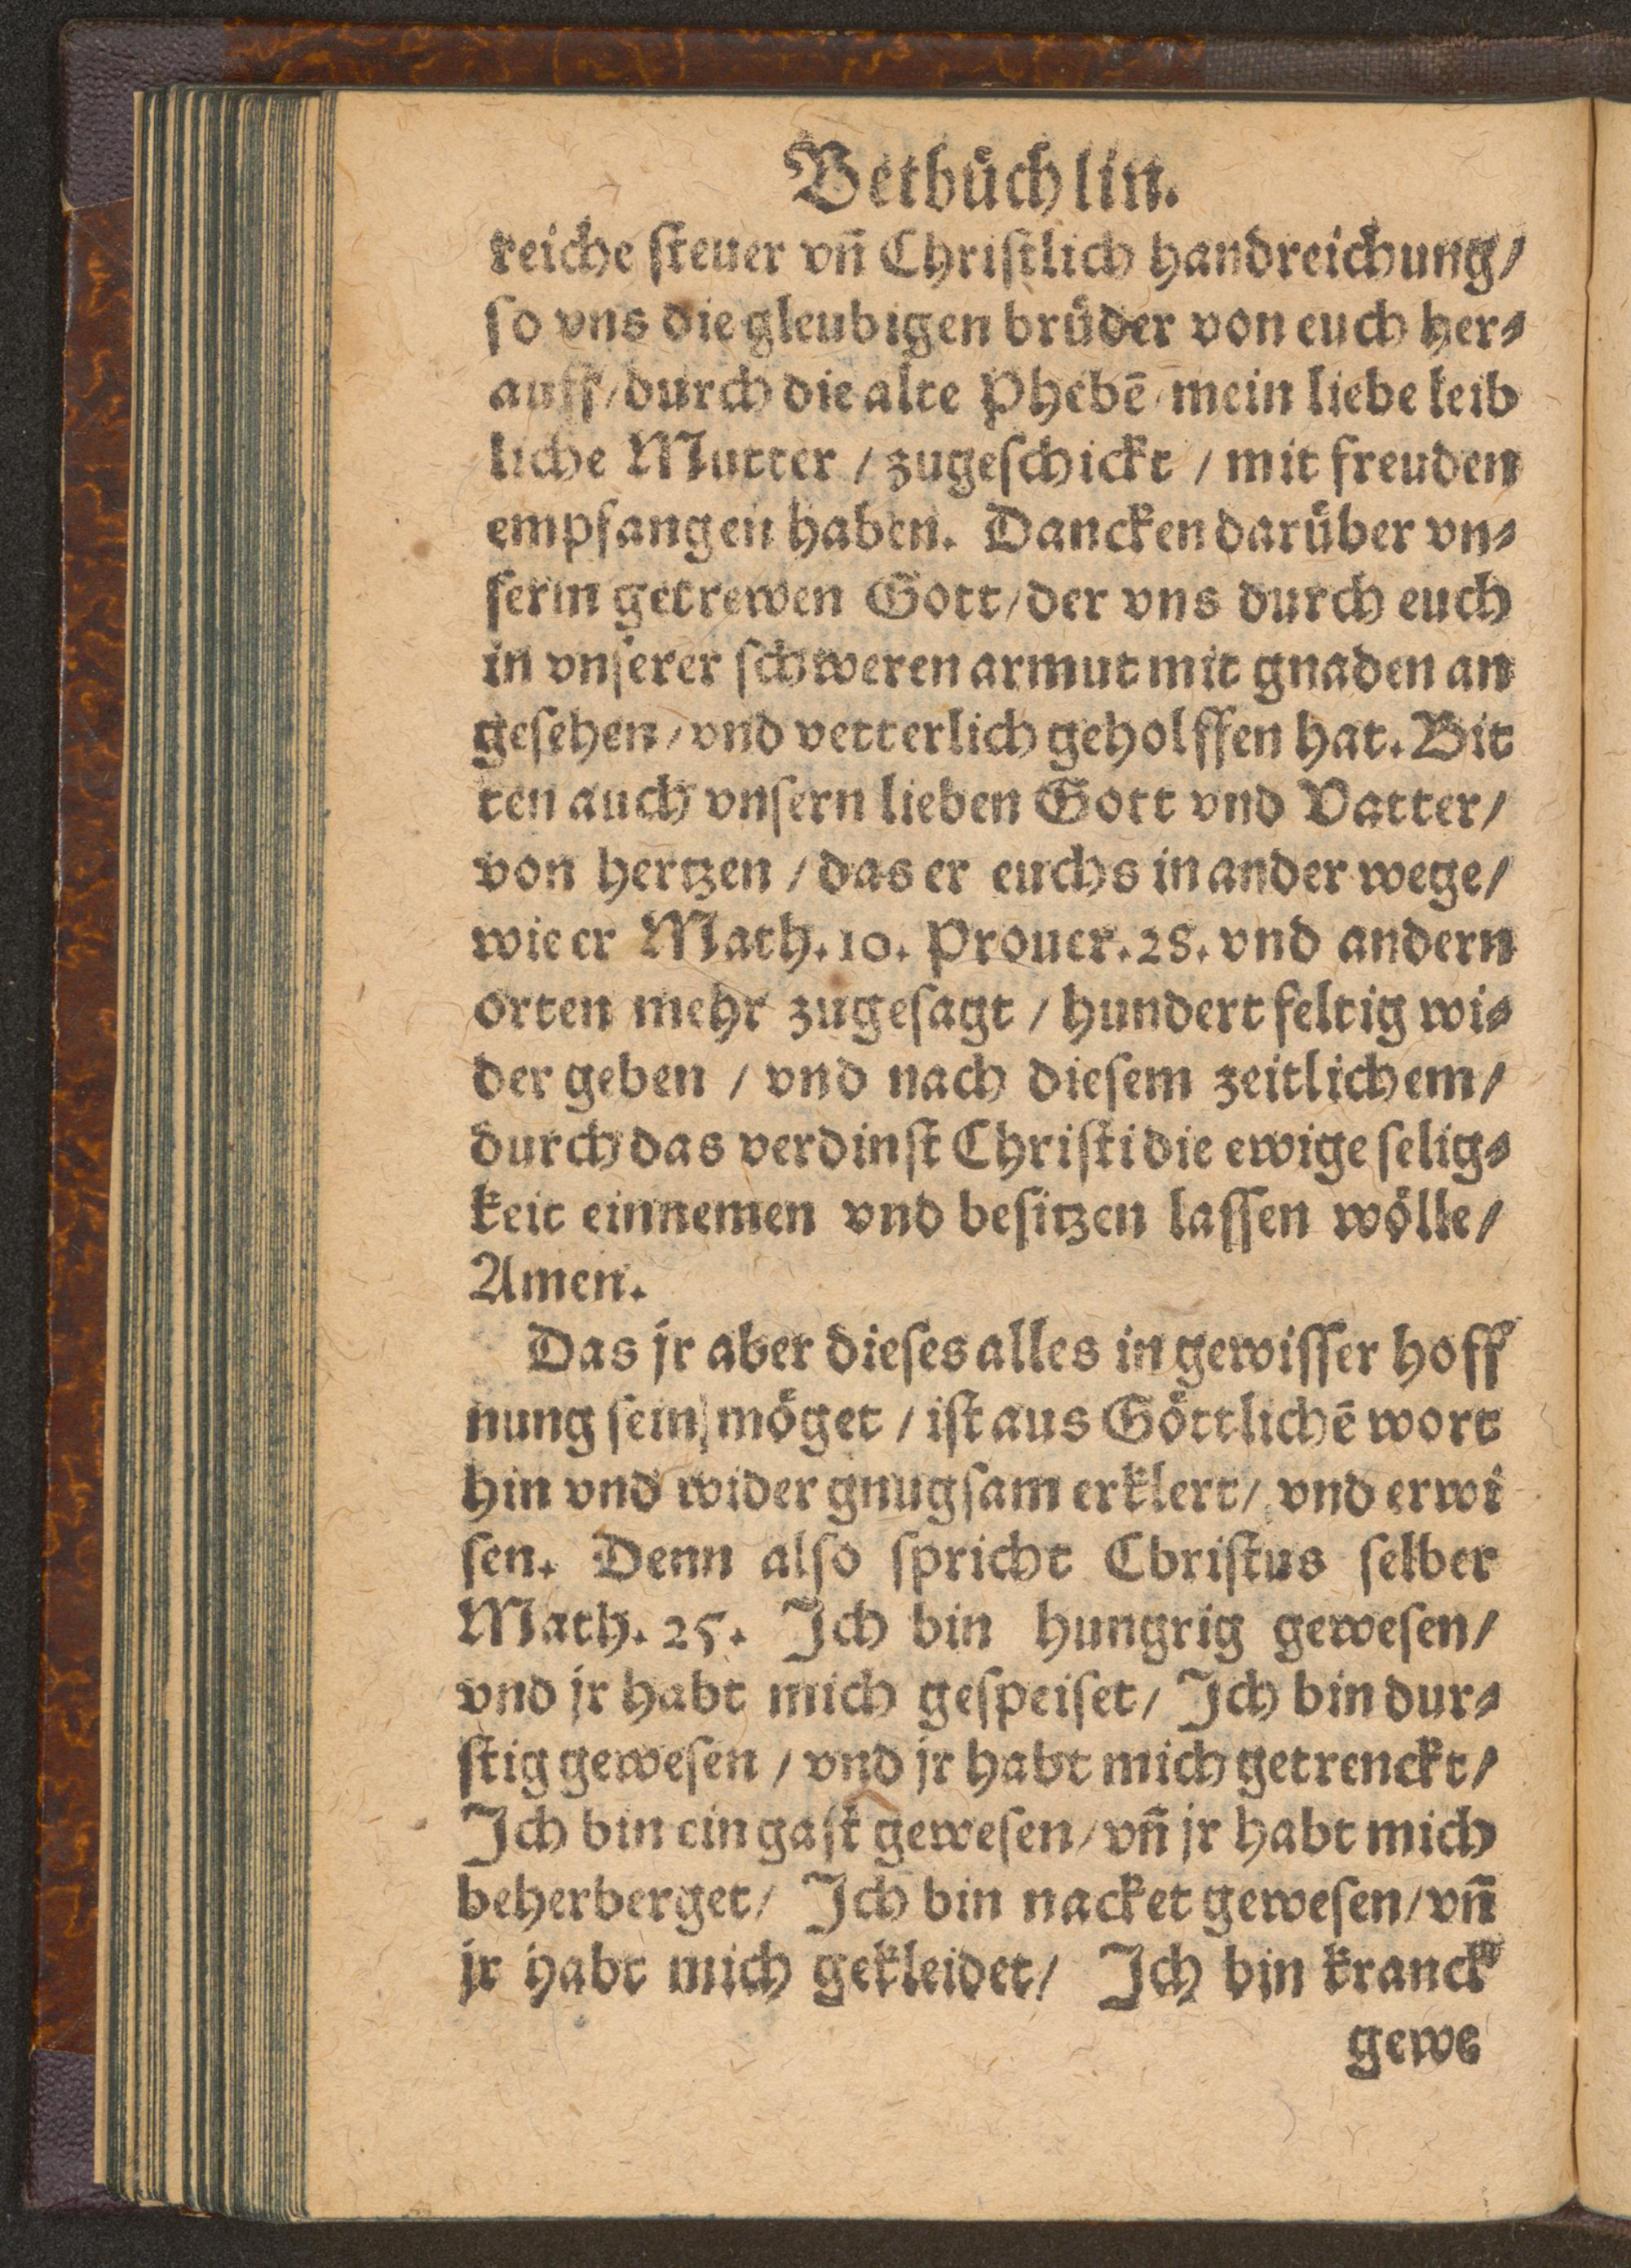 Betbuͤchlin.
reiche ſteuer vn̄ Chriſtlich handreichung/
ſo vns die gleubigen bruͤder von euch her⸗
auff/durch die alte Phebē/mein liebe leib
liche Mutter / zugeſchickt / mit freuden
empfangen haben. Dancken daruͤber vn⸗
ſerm getrewen Gott/der vns durch euch
in vnſerer ſchweren armut mit gnaden an
geſehen/vnd vetterlich geholffen hat. Bit
ten auch vnſern lieben Gott vnd Vatter/
von hertzen / das er euchs in ander wege/
wie er Math. 10. Prouer. 28. vnd andern
orten mehr zugeſagt / hundertfeltig wi⸗
der geben / vnd nach dieſem zeitlichem/
durch das verdinſt Chriſti die ewige ſelig⸗
keit einnemen vnd beſitzen laſſen woͤlle/
Amen.
Das jr aber dieſes alles in gewiſſer hoff
nung ſein moͤget / iſt aus Goͤttlichē wort
hin vnd wider gnugſam erklert/ vnd erwi
ſen. Denn alſo ſpricht Cbriſtus ſelber
Math. 25. Ich bin hungrig geweſen/
vnd jr habt mich geſpeiſet/ Ich bin dur⸗
ſtig geweſen / vnd jr habt mich getrenckt/
Ich bin ein gaſt geweſen/vn̄ jr habt mich
beherberget/ Ich bin nacket geweſen/vn̄
jr habt mich gekleidet/ Ich bin kranck
gewe